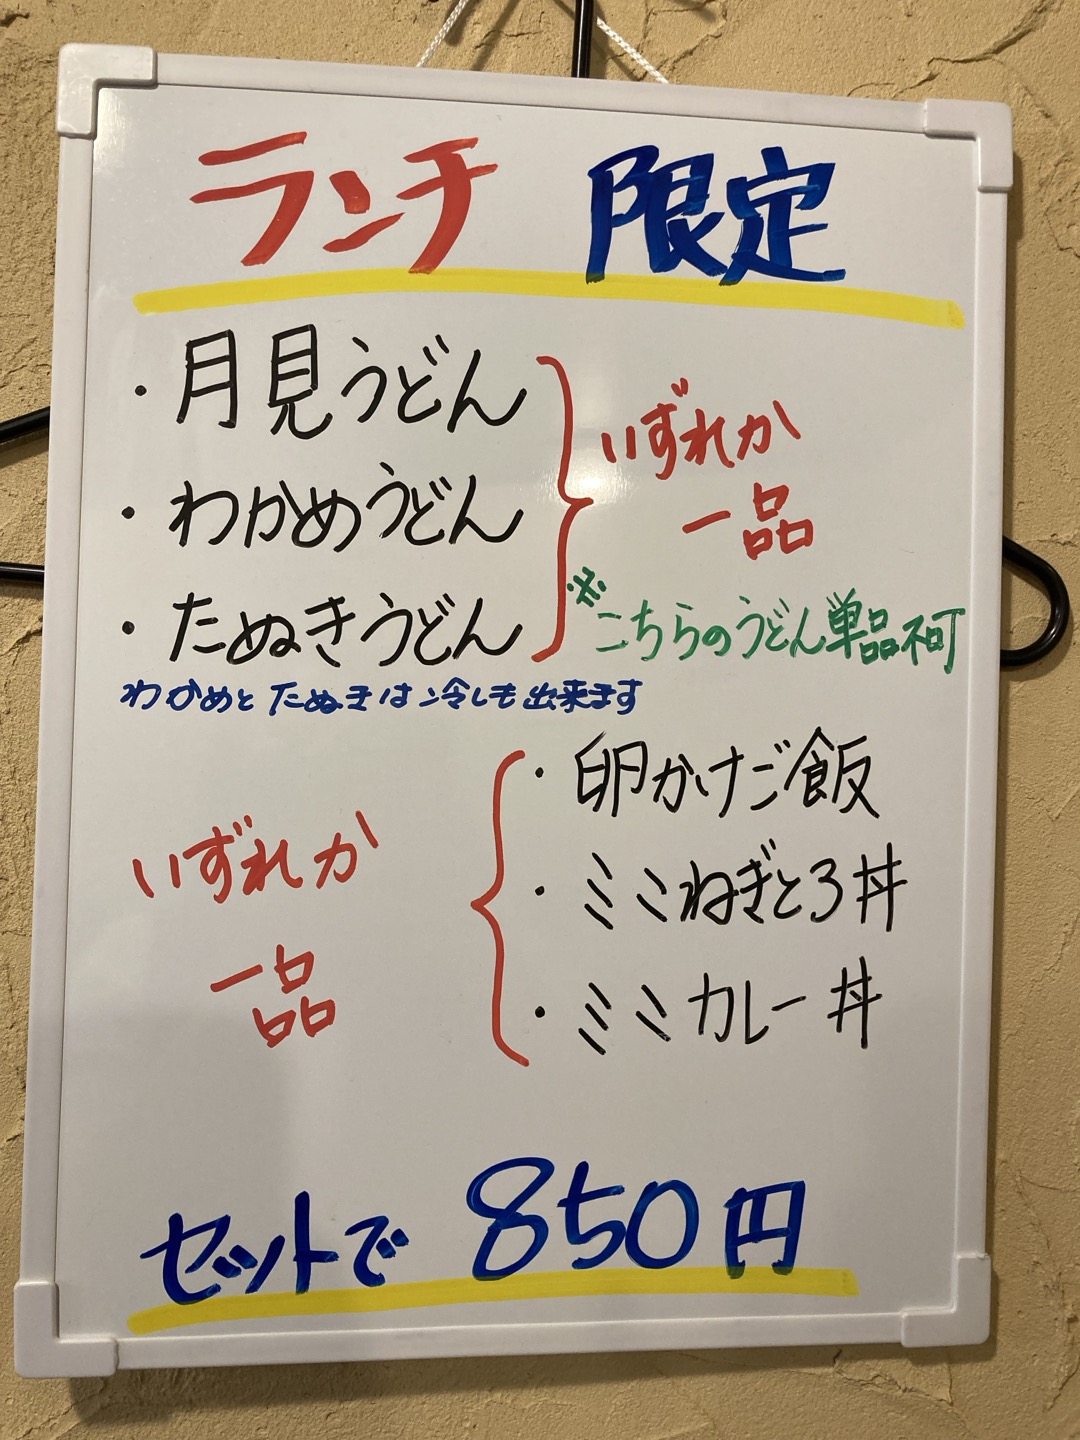 ランチ 限定
・月見うどん
・わかめうどん
・たぬきうどん
いずれか
一品
※こちらのうどん単品不可
わかめと たぬきは冷しも出来ます
いずれか
一品
・卵かけご飯
・ミニねぎとろ丼
・ミニカレー丼
セットで 850円